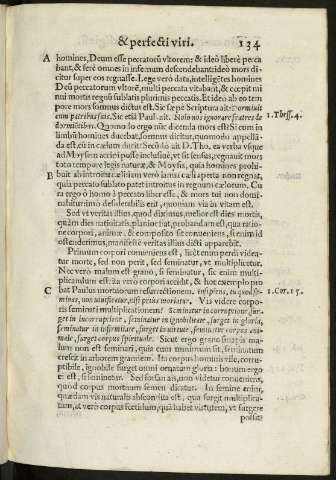 & perfecti viri. 134
A homines, Deum esse peccatorū vltorem: & ideò liberè pecca
bant, & ferè omnes in infernum descendebant: ideò mors di-
citur super eos regnasse. Lege verò data, intelligẽtes homines
Deũ peccatorum vltorẽ, multi peccata vitabant, & cœpit mi
nui mortis regnũ sublatis plurimis peccatis. Et ideò ab eo tem
pore mors somnus dictus est. Sic sæpè Scriptura ait: Dormiuit
cum patribus suis. Sic etiã Paul. ait. Nolo vos ignorare fratres de 1. Thess. 4.
dormientibus. Quomodo ergo nũc dicenda mors est? Si cum in
limbũ homines ducebat, somnus dicitur, quomodo appellã-
da est, cũ in cælum ducit? Secũdò ait D. Tho. ea verba vsque
ad Moysem accipi posse inclusiuè, vt sit sensus, regnauit mors
toto tempore legis naturæ, & Moysis, quia homines prohi-
B buit ab introitu cæli:cum verò iam cæli aperta non regnat,
quia peccato sublato patet introitus in regnum cælorum. Cũ
ra ergo ô homo à peccato liber esse, & mors tui non domi-
nabitur: imò desiderabilis erit, quoniam via in vitam est.
Sed vt veritas illius, quod diximus, melior est dies mortis,
quàm dies natiuitatis, planior fiat, probandam est, qua ratio-
ne corpori, animæ, & composito sit conueniens, si enim id
ostenderimus, manifestè veritas illius dicti apparebit.
Primùm corpori conueniens est, licèt enim perdi videa-
tur morte, sed non perit, sed seminatur, vt multiplicetur.
Nec verò malum est grano, si seminatur, sic enim multi-
plicandum est: ita verò corpori accidit, & hoc exemplo pro
C bat Paulus mortuorum resurrectionem. insipiens, tu quod se- 1. Cor. 15.
minas, non viuificatur, nisi prius moriatur. Vis videre corpo-
ris seminati multiplicationem? Seminatur in corruptione, sur-
get in incorruptione, seminatur in ignobilitate, surget in gloria,
seminatur in infirmitate, surget in virtute, seminatur corpus ani-
male, surget corpus spirituale. Sicut ergo grano sinapis ma-
lum non est seminari, quia cum minimum sit, seminatum
crescit in arborem grandem. Ita corpus hominis vile, corru-
ptibile, ignobile surget omni ornatum gloria: bonum ergo
ei est, si seminetur. Sed forsan ais, non videtur conueniens,
quod corpus mortuum semen dicatur. In semine enim,
quædam vis naturalis abscondita est, qua surgit multiplica-
tum, at verò corpus fœtidum, quã habet virtutem, vt surgere
possit?